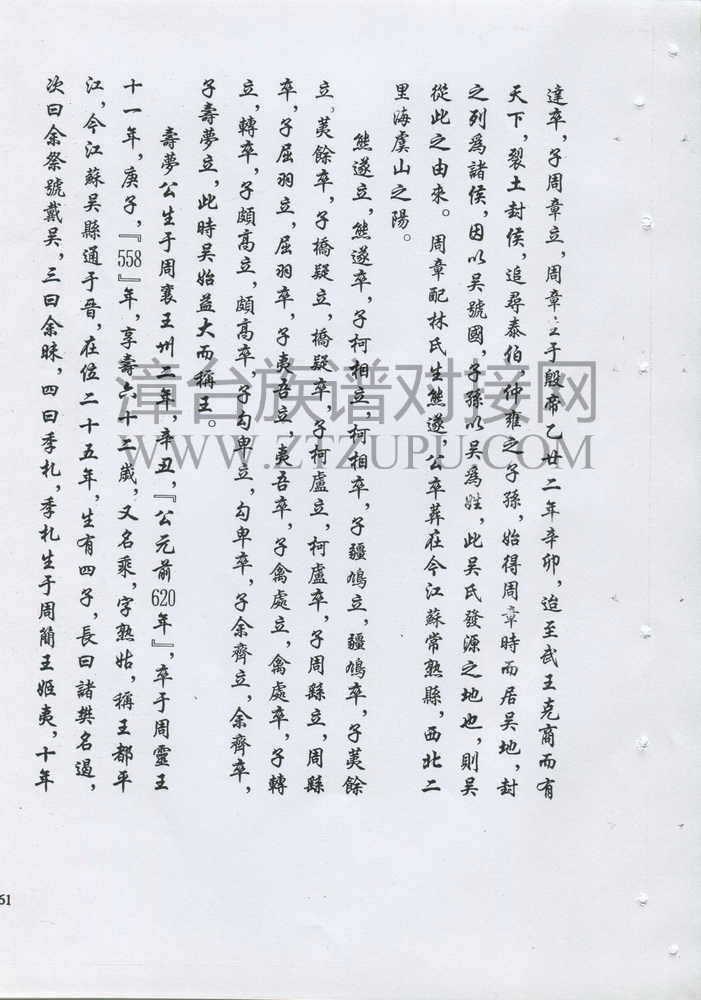 達卒，子周章立，周章生于殷帝乙廿二年辛卯，迨至武王克商而有
天下，裂土封侯，追尋泰伯，仲雍之子孫，始得周章時而居吳地，封
之列為諸侯，因以吳號國，子孫以吳為姓，此吳氏發源之地也，則吳
從此之由來。周章配林氏生熊遂，公卒葬在今江蘇常熟縣，西北二
里海虞山之陽。
熊遂立，熊遂卒，子柯相立，柯相卒，子疆鳩立，疆鳩卒，子荑餘
立，荑餘卒，子橋疑立，橋疑卒，子柯盧立，柯盧卒，子周繇立，周繇
卒，子屈羽立，屈羽卒，子夷吾立，夷吾卒，子禽處立，禽處卒，子轉
立，轉卒，子頗高立，頗高卒，子勾卑立，勾卑卒，子余齊立，余齊卒，
子壽夢立，此時吳始益大而稱王。
壽夢公生于周襄王卅二年，辛丑，『公元前620年』，卒于周靈王
十一年，庚子，『558』年，享壽六十二歲，又名乘，字熟姑，稱王都平
江，今江蘇吳縣通于晉，在位二十五年，生有四子，長曰諸樊名遏，
次曰余祭號戴吳，三曰余昧，四曰季札，季札生于周簡王姬夷，十年
61
漳台族谱对接网
WWW.ZTZUPU.COM